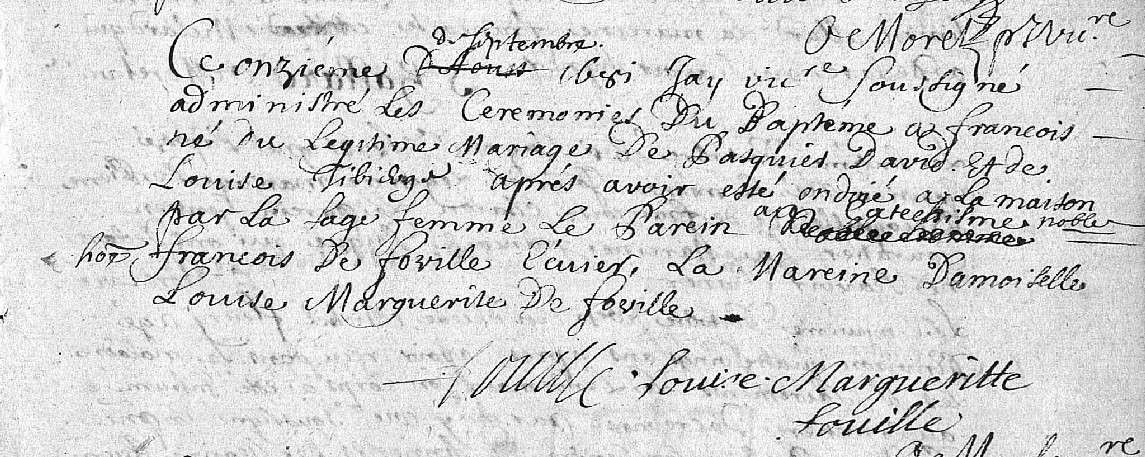 O Morel p^r vic^re
de septembre
Ce onziéme d'Aoust 1681 Jay vic^re soussigné
administré Les Ceremonies Du Baptéme a francois
né du Legitime Mariage De Pasquier David Et de
Louise aprés avoir esté ondoié a La maison
par La sage femme Le Parein au Catechisme noble
hoe francois De foville Ecuier, La Mareine Damoiselle
Louise Marguerite De foville
fouille Louise Margueritte
fouille